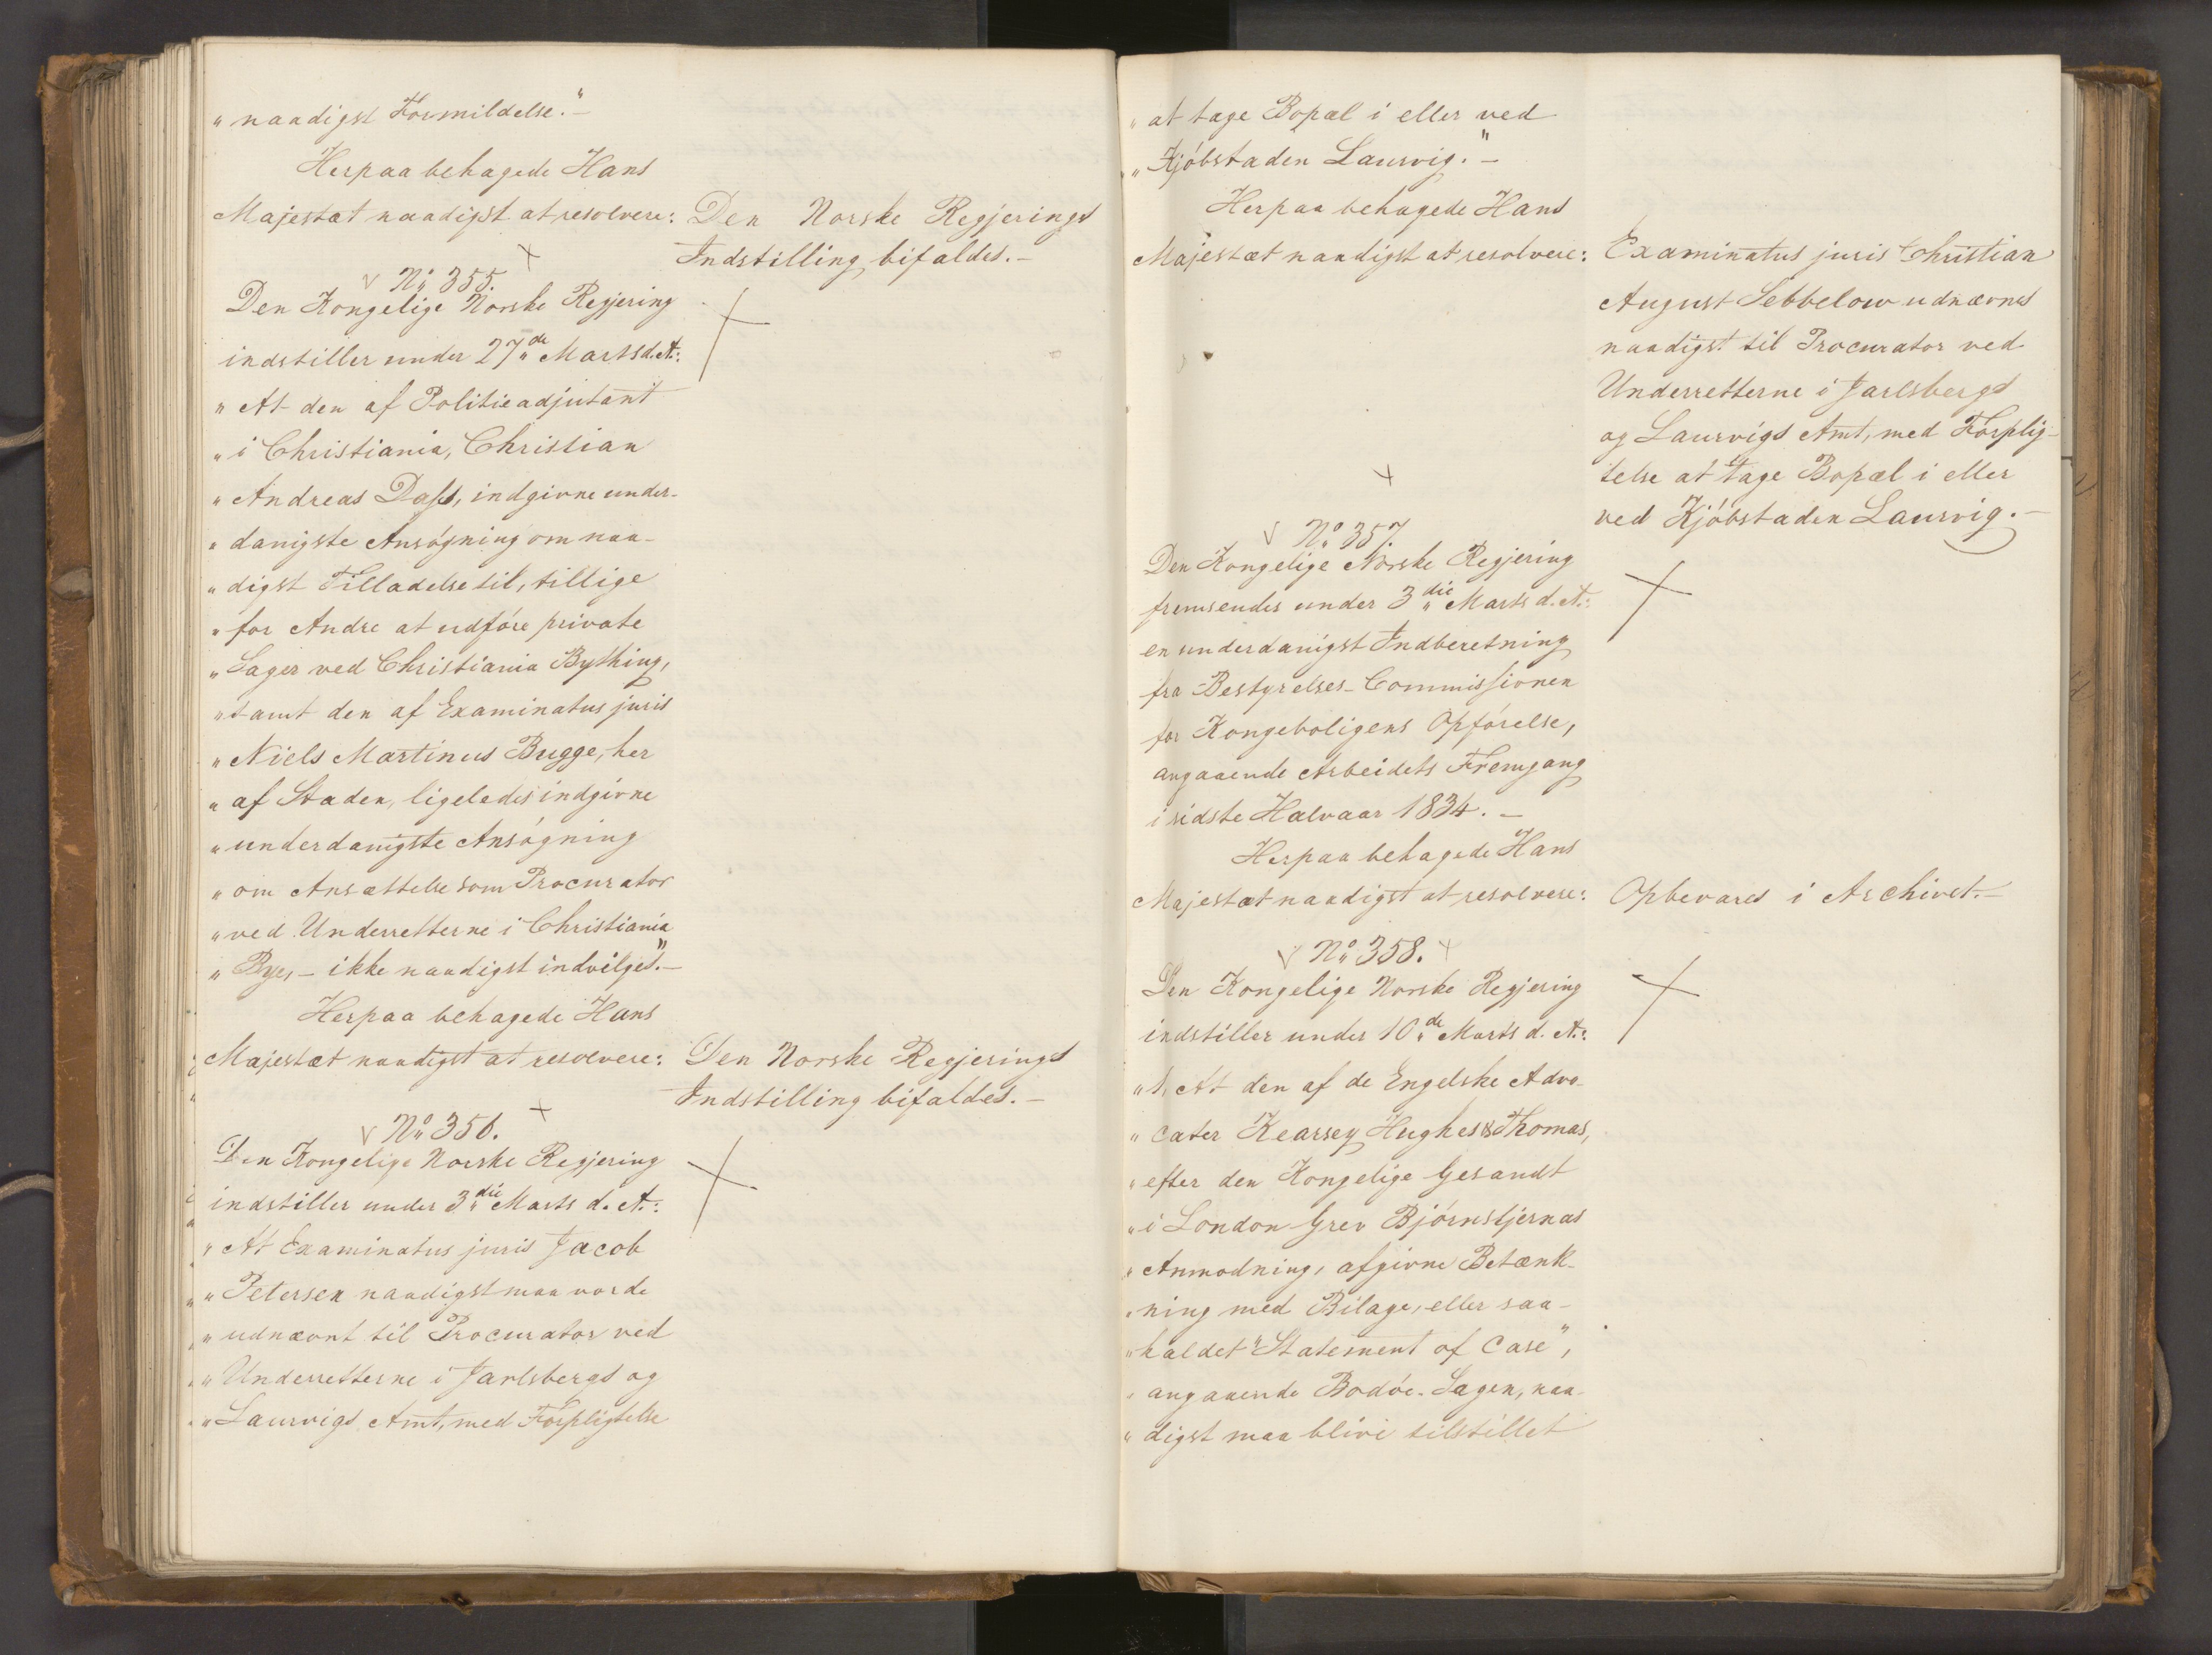 „naadigst Formildelse.“ –
Herpaa behagede Hans
Majestæt naadigst at resolvere:
Den Norske Regjerings
Indstilling bifaldes. –
No 355.
Den Kongelige Norske Regjering
indstiller under 27de Marts d. A.:
„At den af Politieadjutant
„i Christiania, Christian
„Andreas Dass, indgivne under-
„danigste Ansøgning om naa-
„digst Tilladelse til, tillige
„for Andre at udføre private
„Sager ved Christiania Bything,
„samt den af Examinatus juris
„Niels Martinus Bugge, her
„af Staden, ligeledes indgivne
„underdanigste Ansøgning
„om Ansættelse som Procurator
„ved Underretterne i Christiania
„Bye, – ikke naadigst indvilges.“ –
Herpaa behagede Hans
Majestæt naadigst at resolvere:
Den Norske Regjerings
Indstilling bifaldes. –
No 356.
Den Kongelige Norske Regjering
indstiller under 3die Marts d. A.:
„At Examinatus juris Jacob
„Petersen naadigst maa vorde
„udnævnt til Procurator ved
„Underretterne i Jarlsbergs og
„Laurvigs Amt, med Forpligtelse
„at tage Bopæl i eller ved
„Kjøbstaden Laurvig.“ –
Herpaa behagede Hans
Majestæt naadigst at resolvere:
Examinatus juris Christian
August Sebbelow udnævnes
naadigst til Procurator ved
Underretterne i Jarlsbergs
og Laurvigs Amt, med Forplig-
telse at tage Bopæl i eller
ved Kjøbstaden Laurvig. –
No 357.
Den Kongelige Norske Regjering
fremsendes under 3die Marts d. A.:
en underdanigst Indberetning
fra Bestyrelses-Commissionen
for Kongeboligens Opførelse,
angaaende Arbeidets Fremgang
i sidste Halvaar 1834. –
Herpaa behagede Hans
Majestæt naadigst at resolvere:
Opbevares i Archivet. –
No 358.
Den Kongelige Norske Regjering
indstiller under 10de Marts d. A.:
„1, At den af de Engelske Advo-
„cater Kearsey Hughes & Thomas,
„efter den Kongelige Gesandt
„i London Grev Bjørnstjernas
„Anmodning, afgivne Betænk-
„ning med Bilage, eller saa-
„kaldet “Statement of Case”,
„angaaende Bodøe-Sagen, naa-
„digst maa blive tilstillet